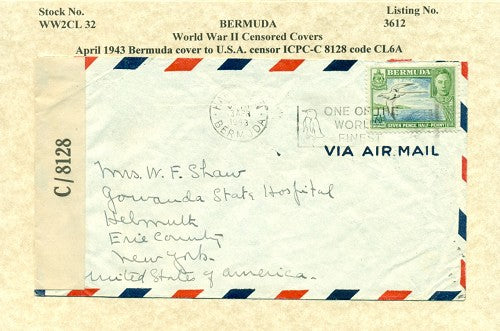 Stock No.
WW2CL 32
BERMUDA
World War II Censored Covers
April 1943 Bermuda cover to U.S.A. censor ICPC-C 8128 code CL6A
Listing No.
3612
BERMUDA
SEVEN PENCE HALF-PENNY
1943
BERMUDA
ONE OF THE
WORLD
FINEST
VIA AIR MAIL
C/8128
Mrs. W. F. Shaw
Gowanda State Hospital
Helmuth
Erie County
New York.
United States of America.